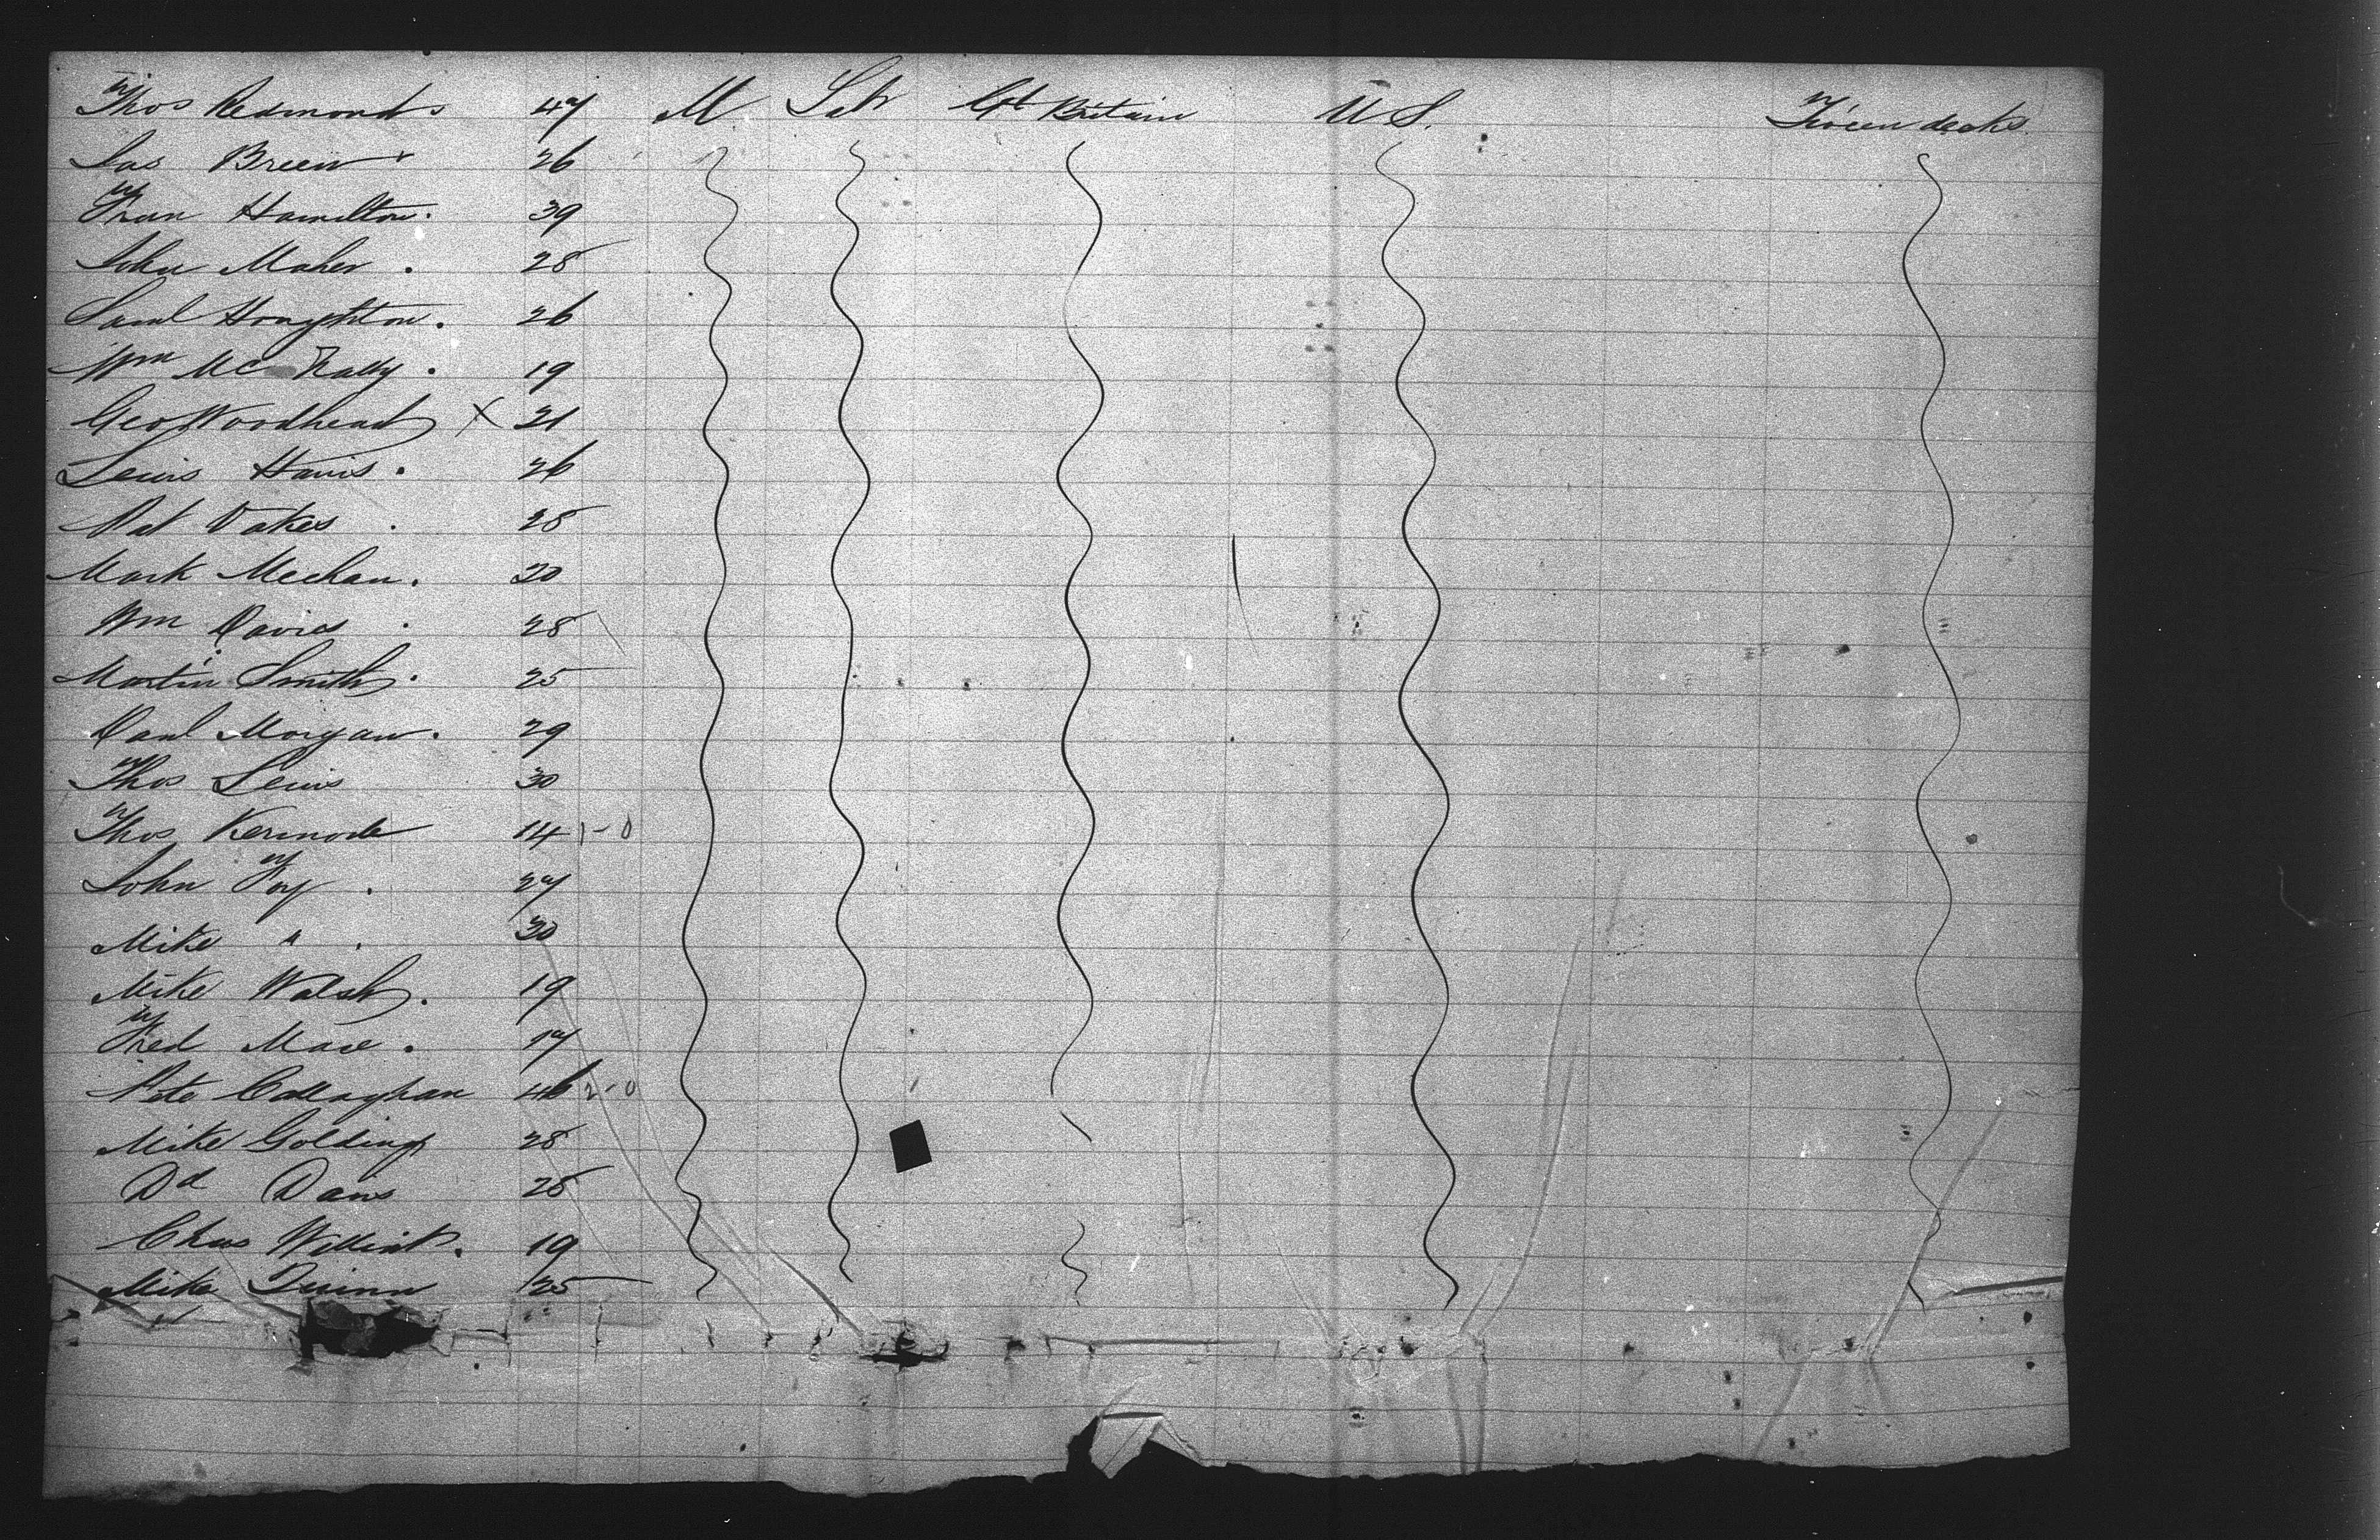 Thos Redmonds 47 M Lab Gt Britain U S. Tween decks
Jas Breen 26
Fran Hamilton. 39
John Maher. 28
Saml Houghton. 26
Wm McNally. 19
Geo Woodhead X 21
Lewis Harris. 26
Pat Oakes. 28
Mark Meehan. 20
Wm Davies. 28
Martin Smith. 25
Danl Morgan. 29
Thos Lewis 30
Thos Kermode 14 1-0
John Foy. 27
Mike ". 30
Mike Walsh. 19
Fred Mace. 17
Pete Callaghan 46 2-0
Mike Golding 28
Dd Davis 28
Chas 19
Mike Quinn 25